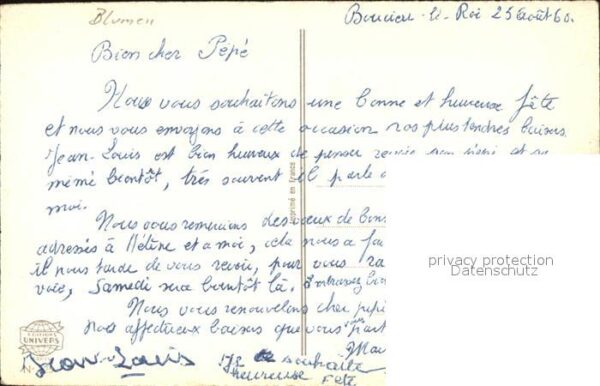 Blumen
Boucieu-le-Roi 25 Août 60.
Bien cher Pépé
Nous vous souhaitons une bonne et heureuse fête
et nous vous envoyons à cette occasion nos plus tendres baisers
Jean-Louis est bien heureux de penser revoir son
mémé bientôt, très souvent il parle
moi.
Nous vous remercions des vœux de bon
adressés à Hélène et a moi, cela nous a
il nous tarde de vous revoir, pour vous
voie, Samedi sera bientôt là. Embrassez
Nous vous renouvelons cher
nos affectueux baisers que vous
Jean-Louis te souhaite
heureuse Fête
Imprimé en France
EDITIONS
UNIVERS
privacy protection
Datenschutz